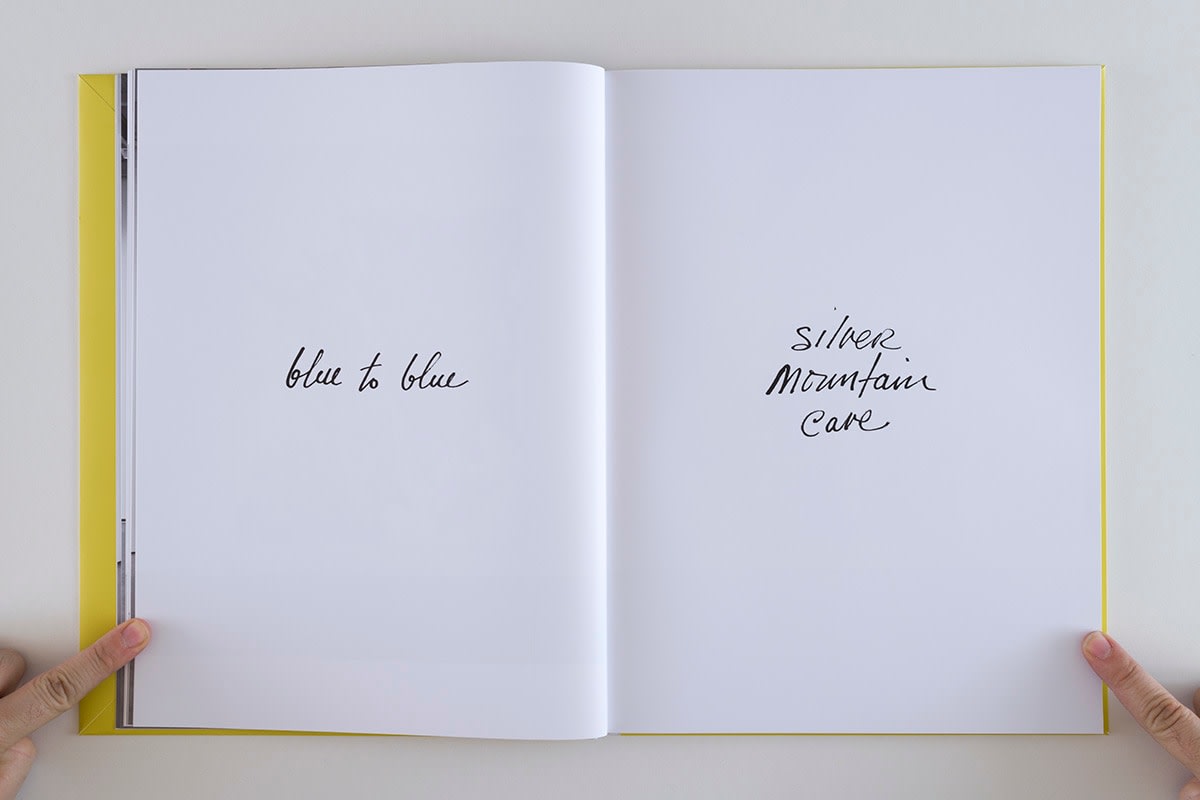 blue to blue
silver
mountain
cave